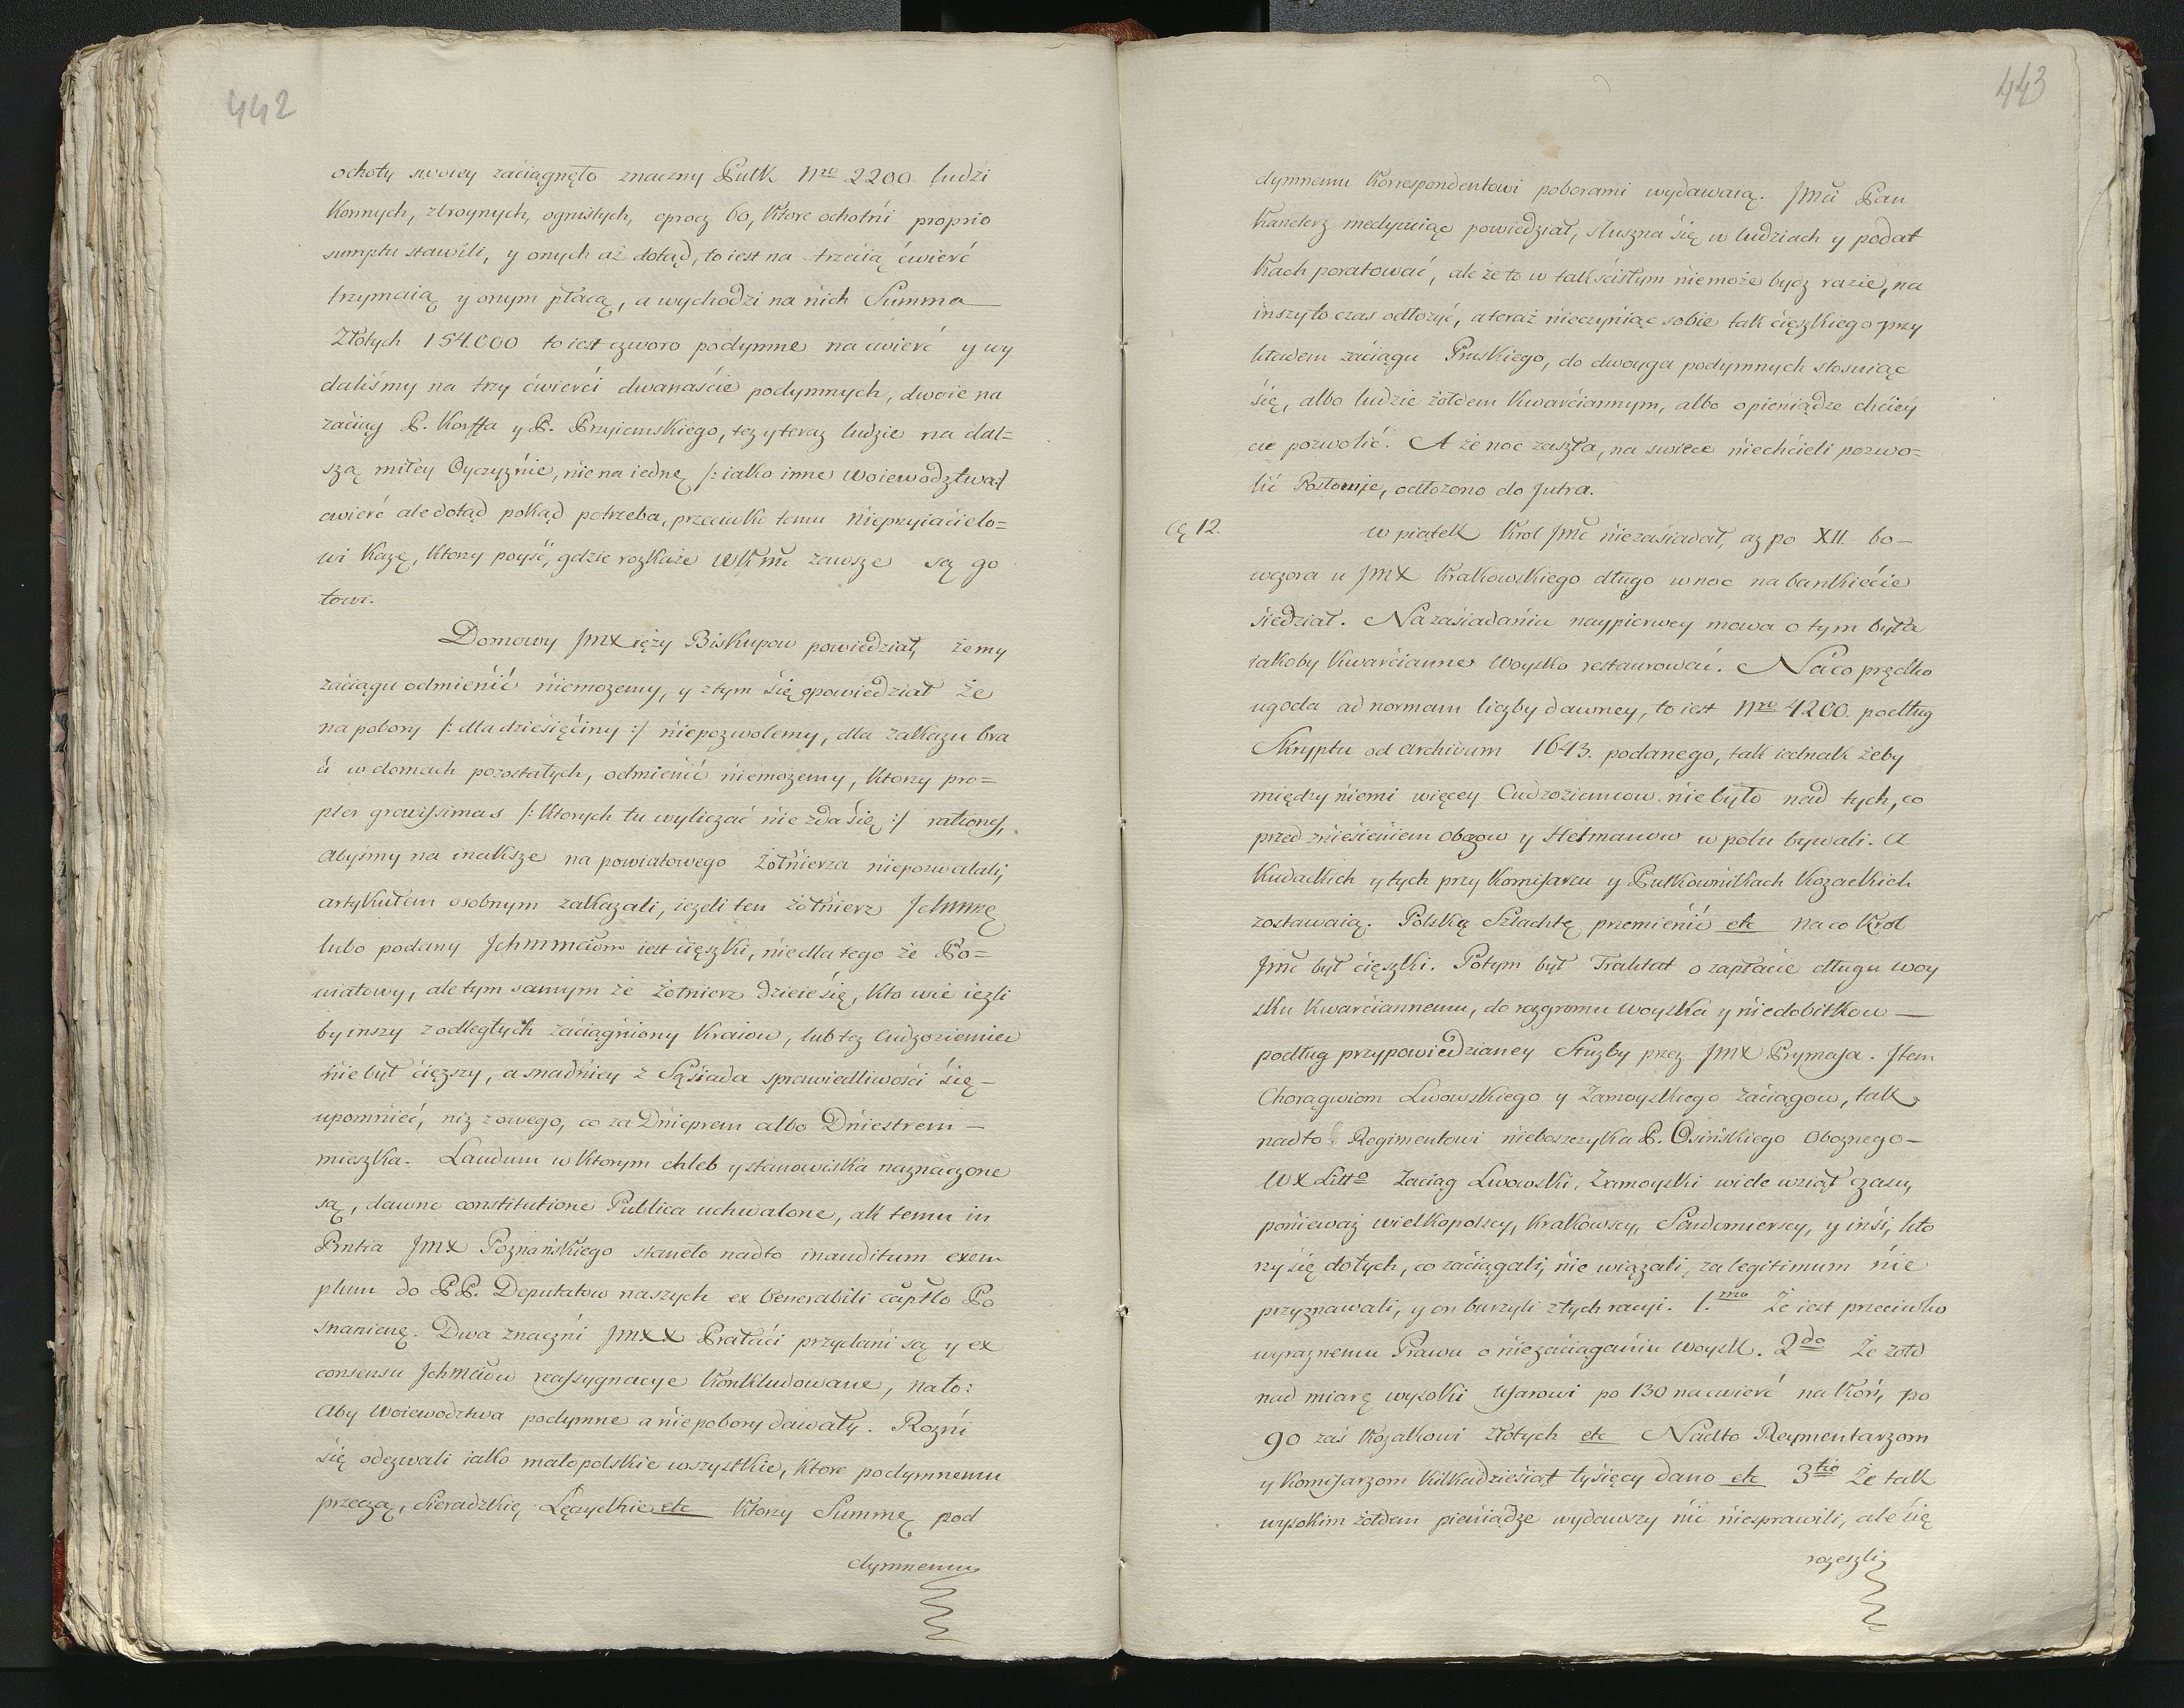 442
ochoty swoiey zaciągnęło znaczny Pułk Nre 2200 ludzi
Konnych, zbroynych, ognistych, oprocz 60, Ktore ochotni proprio
sumptu stawili, y onych aż dotąd, to iest na trzecią ćwierć
trzymaią y onym płacą, a wychodzi na nich Summa
Złotych 154.000 to iest czworo podymne na cwierć y wy
daliśmy na trzy ćwierći dwanaście podymnych, dwoie na
zaciug P. Korffa y P. Przyiemskiego, tez y teraz ludzie na dal=
szą miłey Oyczyźnie, nie na iednę /: iako inne Woiewodztwa :/
cwierć ale dotąd pokąd potrzeba, przeciwko temu Nieprzyiacielo=
wi Każą, Ktorzy poyść, gdzie rozkaże WKMć zawsze są go
towi.
Domowy JmXięży Biskupow powiedział, że my
zaciągu odmienić niemożemy, y z tym się opowiedział że
na pobory /: dla dziesięciny :/ niepozwolemy, dla zakazu bra
ci w domach pozostałych, odmienić niemożemy, Ktorzy pro=
pter gravissimas /: Ktorych tu wyliczać nie zda się :/ rationes,
abyśmy na inaksze na powiatowego żołnierza niepozwalali,
artykułem osobnym zakazali, ieżeli ten żołnierz
lubo podany iest cięszki, nie dla tego że Po=
wiatowy, ale tym samym że żołnierz dzieie się, Kto wie ieżli
by inszy z odległych zaciągniony Kraiow, lub też Cudzoziemiec
nie był cięższy, a snadniey z Sąsiada sprawiedliwości się
upomnieć, niż z owego, co za Dnieprem albo Dniestrem
mieszka. Laudum w Ktorym chleb y stanowiska naznaczone
są, dawno constitutione Publica uchwalone, ale temu in
Pntia JmX Poznańskiego staneło nadto inauditum exem
plum do PP. Deputatow naszych ex Venerabili captlo Po
snanienę. Dwa znaczni JmXX Prałaći przydani są y ex
consensu reassygnacye Konkludowane, na to:
Aby Woiewodztwa podymne a niepobory dawały. Rozni
się odezwali iako małopolskie wszystkie, Ktore podymnemu
przeczą, Sieradzkie, Łęczyckie etc Ktorzy Summę pod
dymnemu
443
dymnemu Korrespondentowi poborami wydawaią. Jmć Pan
Kanclerz medyuiąc powiedział, słuszna się w ludziach y podat
kach poratować, ale że to w tak ścisłym niemoże bydz razie, na
inszy to czas odłożyć, a teraz nieczyniąc sobie tak cięszkiego przy
kładem zaciągu Pruskiego, do dwoyga podymnych stosuiąc
się, albo ludzie żołdem Kwarciannym, albo o pieniądze chciey
cie pozwolić. A że noc zaszła, na swiece niechcieli pozwo=
lić Posłowie, odłożono do Jutra.
12. w piątek Krol Jmć niezasiadał, aż po XII. bo
wczora u JmX Krakowskiego długo w noc na bankiecie
siedział. Na zasiadaniu naypierwey mowa o tym była
iakoby Kwarcianne Woysko restaurować. Na co prędko
ugoda ad normam liczby dawney, to iest Nro 4200. podług
Skryptu od archivum 1643. podanego, tak iednak żeby
między niemi więcey Cudzoziemcow nie było nad tych, co
przed zniesieniem obozow y Hetmanow w polu bywali. A
Kudackich y tych przy Komisarzu y Pułkownikach Kozackich
zostawaią. Polską Szlachtę przemienić etc na co Krol
Jmć był cięszki. Potym był Traktat o zapłacie długu woy
sku Kwarciannemu, do rozgromu woyska y niedobitkow
podług przypowiedzianey Służby przez JmX Prymasa. Item
Chorągwiom Lwowskiego y Zamoyskiego zaciągow, tak
nadto Regimentowi nieboszczyka P. Osińskiego Oboznego
WX Litto Zaciąg Lwowski, Zamoyski wiele wziął czasu,
ponieważ wielkopolscy, Krakowscy, Sendomierscy, y inśi, kto
rzy się do tych, co zaciągali, nie wiązali, za legitimum nie
przyznawali, y on burzyli z tych racyi. 1.mo Że iest przeciwko
wyraznemu Prawu o niezaciąganiu woysk. 2do Że żołd
nad miarę wysoki Usarowi po 130 na cwierć na Koń, po
90 zaś Kozakowi złotych etc Nadto Reymentarzom
y Komisarzom Kilkadziesiąt tysięcy dano etc 3tio Że tak
wysokim żołdem pieniądze wydawszy nic niesprawili, ale się
rozeszli